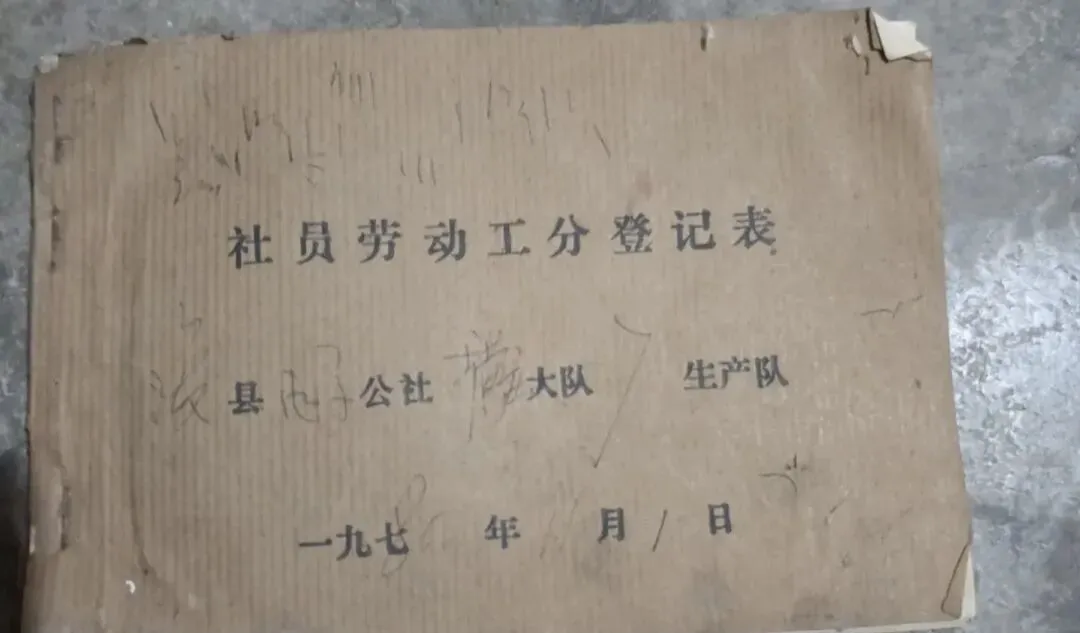 社员劳动工分登记表
县 公社 大队 7 生产队
一九七8年 月1日